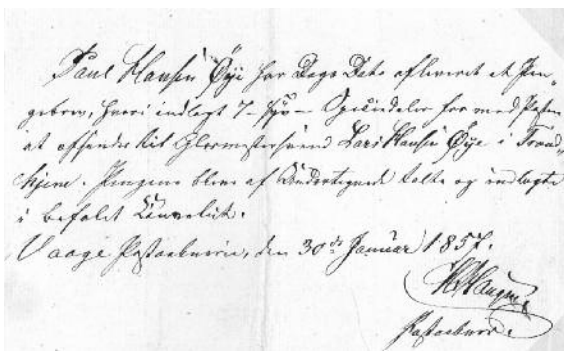 Paul Hansen Øye har Dags Dato afleveret et Pen-
gebrev, hvori indlagt 7 – syv – Speciedaler for med Posten
at afsendes til Glarmestersvend Lars Hansen Øye i Trond-
hjem. Pengene bleve af Undertegnede talte og indlagte
i befalet Couvolut.
Vaage Postaabnerie, den 30te Januar 1857.
H Haugen
Postaabner.